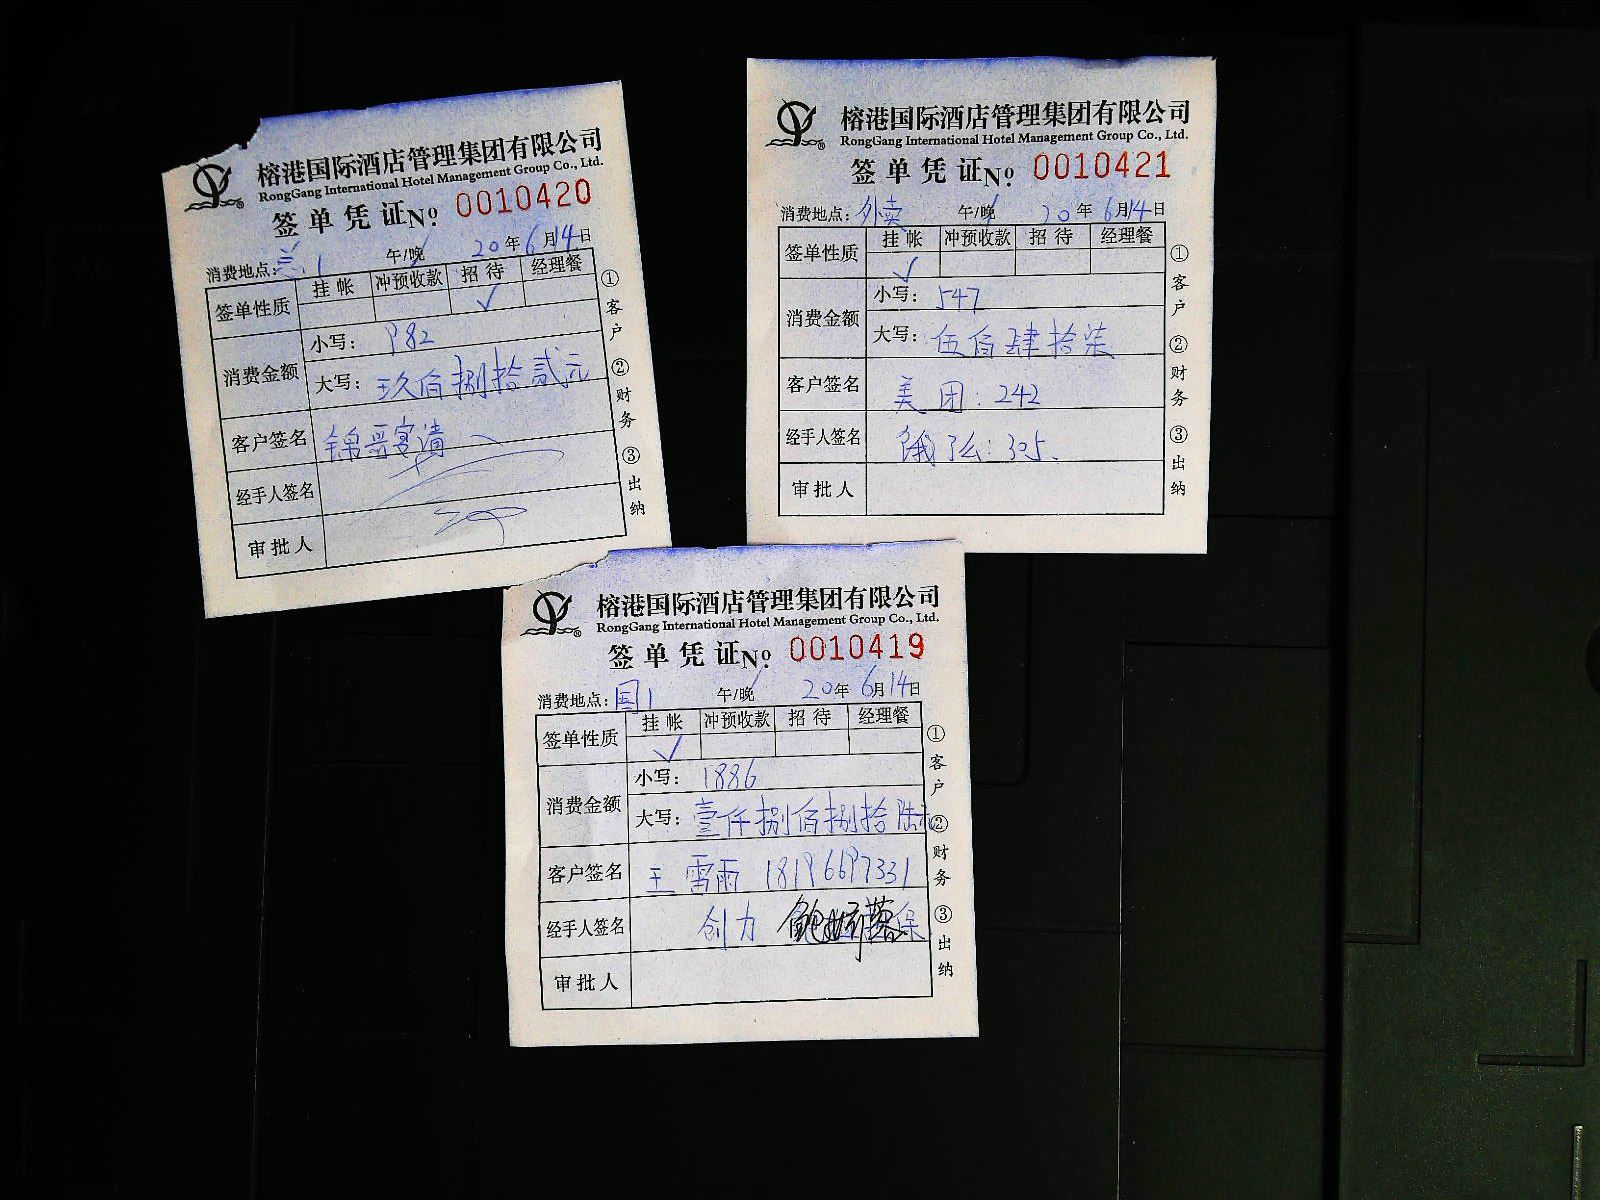 榕港国际酒店管理集团有限公司
RongGang International Hotel Management Group Co., Ltd.
签单凭证No. 0010420
消费地点: 1 午/晚 20年6月14日
签单性质 挂帐 冲预收款 招待 经理餐
✓
消费金额 小写: 982
大写: 玖佰捌拾贰元
客户签名 锦哥宴请
经手人签名
审批人
①客户 ②财务 ③出纳
榕港国际酒店管理集团有限公司
RongGang International Hotel Management Group Co., Ltd.
签单凭证No. 0010421
消费地点: 外卖 午/晚 20年6月14日
签单性质 挂帐 冲预收款 招待 经理餐
✓
消费金额 小写: 547
大写: 伍佰肆拾柒
客户签名 美团: 242
经手人签名 饿了么: 305.
审批人
①客户 ②财务 ③出纳
榕港国际酒店管理集团有限公司
RongGang International Hotel Management Group Co., Ltd.
签单凭证No. 0010419
消费地点: 国1 午/晚 20年6月14日
签单性质 挂帐 冲预收款 招待 经理餐
✓
消费金额 小写: 1886
大写: 壹仟捌佰捌拾陆元
客户签名 王雷雨 18196697331
经手人签名 创力 保
审批人
①客户 ②财务 ③出纳